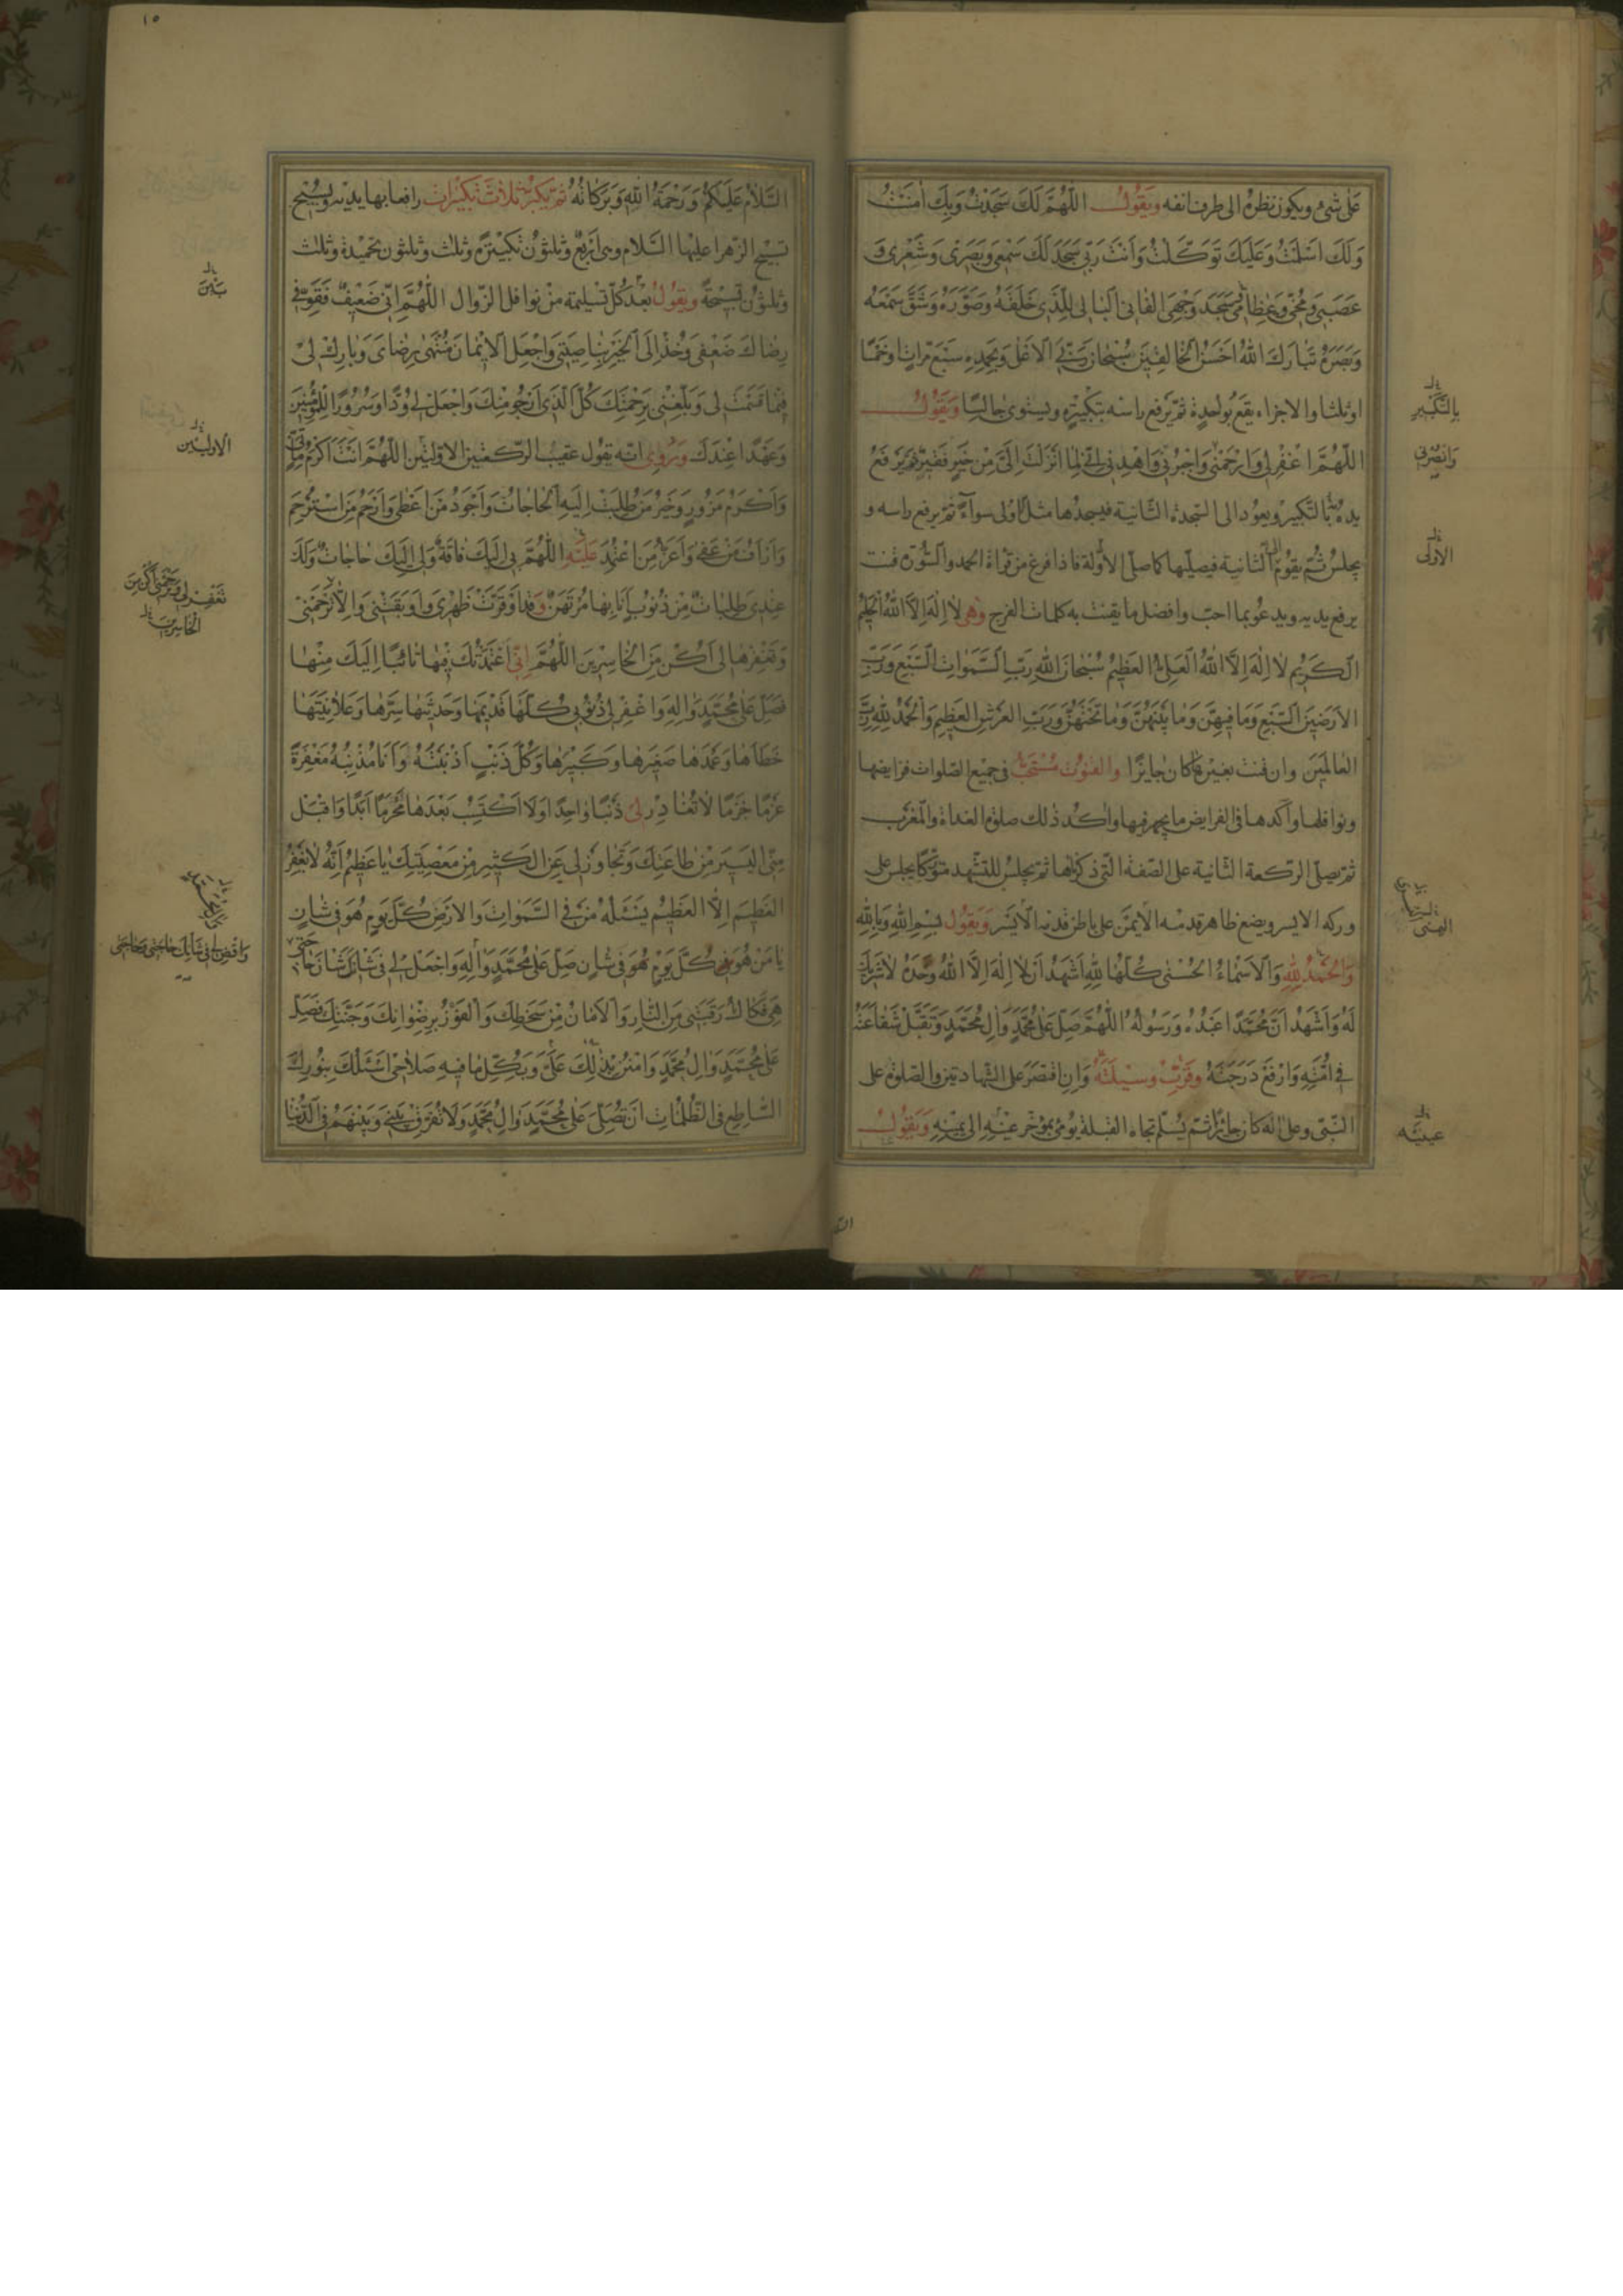 على شئ ويكون نظره الى طرف انفه ويقول اللهم لك سجدت وبك امنت
ولك اسلمت وعليك توكلت وانت ربي سجد لك سمعي وبصري وشعري و
عصبي ومخي وعظامي سجد وجهي الفاني البالي للذي خلقه وصوره وشق سمعه
وبصره تبارك الله احسن الخالقين سبحان ربي الاعلى وبحمده سبع مرات او خمسا
او ثلثا والاجزاء يقع بواحدة ثم يرفع راسه بتكبيرة ويستوى جالسا ويقول
بالتكبير
اللهم اغفر لي وارحمني واجبرني واهدني اني لما انزلت الي من خير فقير ثم يرفع
وانصرني
يديه بالتكبير ويعود الى السجدة الثانية فيسجدها مثل الاولى سواء ثم يرفع راسه و
يجلس ثم يقوم الى الثانية فيصليها كما صلى الاولة فاذا فرغ من قراة الحمد والسورة قنت
الاولى
يرفع يديه ويدعو بما احب وافضل ما يقنت به كلمات الفرج وهي لا اله الا الله الحليم
الكريم لا اله الا الله العلى العظيم سبحان الله رب السموات السبع ورب
الارضين السبع وما فيهن وما بينهن وما تحتهن ورب العرش العظيم والحمد لله رب
العالمين وان قنت بغيرها كان جايزا والقنوت مستحب في جميع الصلوات فرايضها
ونوافلها واكدها في الفرايض ما يجهر فيها واكد ذلك صلوة الغداة والمغرب
ثم يصلى الركعة الثانية على الصفة التي ذكرناها ثم يجلس للتشهد متوركا يجلس على
وركه الايسر ويضع ظاهر قدمه الايمن على باطن قدمه الايسر ويقول بسم الله وبالله
اليمنى
والحمد لله والاسماء الحسنى كلها لله اشهد ان لا اله الا الله وحده لا شريك
له واشهد ان محمدا عبده ورسوله اللهم صل على محمد وال محمد وتقبل شفاعته
في امته وارفع درجته وقرب وسيلته وان اقتصر على الشهادتين والصلوة على
النبي وعلى اله كان جائزا ثم يسلم تجاه القبلة يومئ بمؤخر عينه الى يمينه ويقول
عينيه
١٥
السلام عليكم ورحمة الله وبركاته ثم يكبر ثلاث تكبيرات رافعا بها يديه ويسبح
تسبيح الزهرا عليها السلام وهي اربع وثلثون تكبيرة وثلث وثلثون تحميدة وثلث
وثلثون تسبيحة ويقول بعد كل تسليمة من نوافل الزوال اللهم اني ضعيف فقو في
رضاك ضعفي وخذ الى الخير بناصيتي واجعل الايمان منتهى رضاي وبارك لي
فيما قسمت لي وبلغني برحمتك كل الذي ارجو منك واجعل لي ودا وسرورا للمؤمنين
وعهدا عندك وروي انه يقول عقيب الركعتين الاولتين اللهم انت اكرم ماتي
الاوليين
واكرم مزور وخير من طلبت اليه الحاجات واجود من اعطى وارحم من استرحم
واراف من عفى واعز من اعتمد عليه اللهم بي اليك فاقة ولي اليك حاجات ولك
عندي طلبات من ذنوب انا بها مرتهن وقد اوقرت ظهري واوبقتني والا ترحمني
تغفر لي وترحمني اكن من
الخاسرين
وتغفرها لي اكن من الخاسرين اللهم اني اعتمدتك فيها تائبا اليك منها
فصل على محمد واله واغفر لي ذنوبي كلها قديمها وحديثها سرها وعلانيتها
خطاها وعمدها صغيرها وكبيرها وكل ذنب اذنبته وانا مذنبه مغفرة
عزما جزما لا تغادر لي ذنبا واحدا ولا اكتسب بعدها محرما ابدا واقبل
مني اليسير من طاعتك وتجاوز لي عن الكثير من معصيتك يا عظيم انه لا يغفر
العظيم الا العظيم يسئله من في السموات والارض كل يوم هو في شان
يا من هو كل يوم هو في شان صل على محمد واله واجعل لي في شانك شان حاجتي
واقض لي في شانك حاجتي وحاجتي
هي فكاك رقبتي من النار والامان من سخطك والفوز برضوانك وجنتك فصل
على محمد وال محمد وامنن بذلك علي وبكل ما فيه صلاحي اسئلك بنورك
الساطع في الظلمات ان تصلى على محمد وال محمد ولا تفرق بيني وبينهم في الدنيا